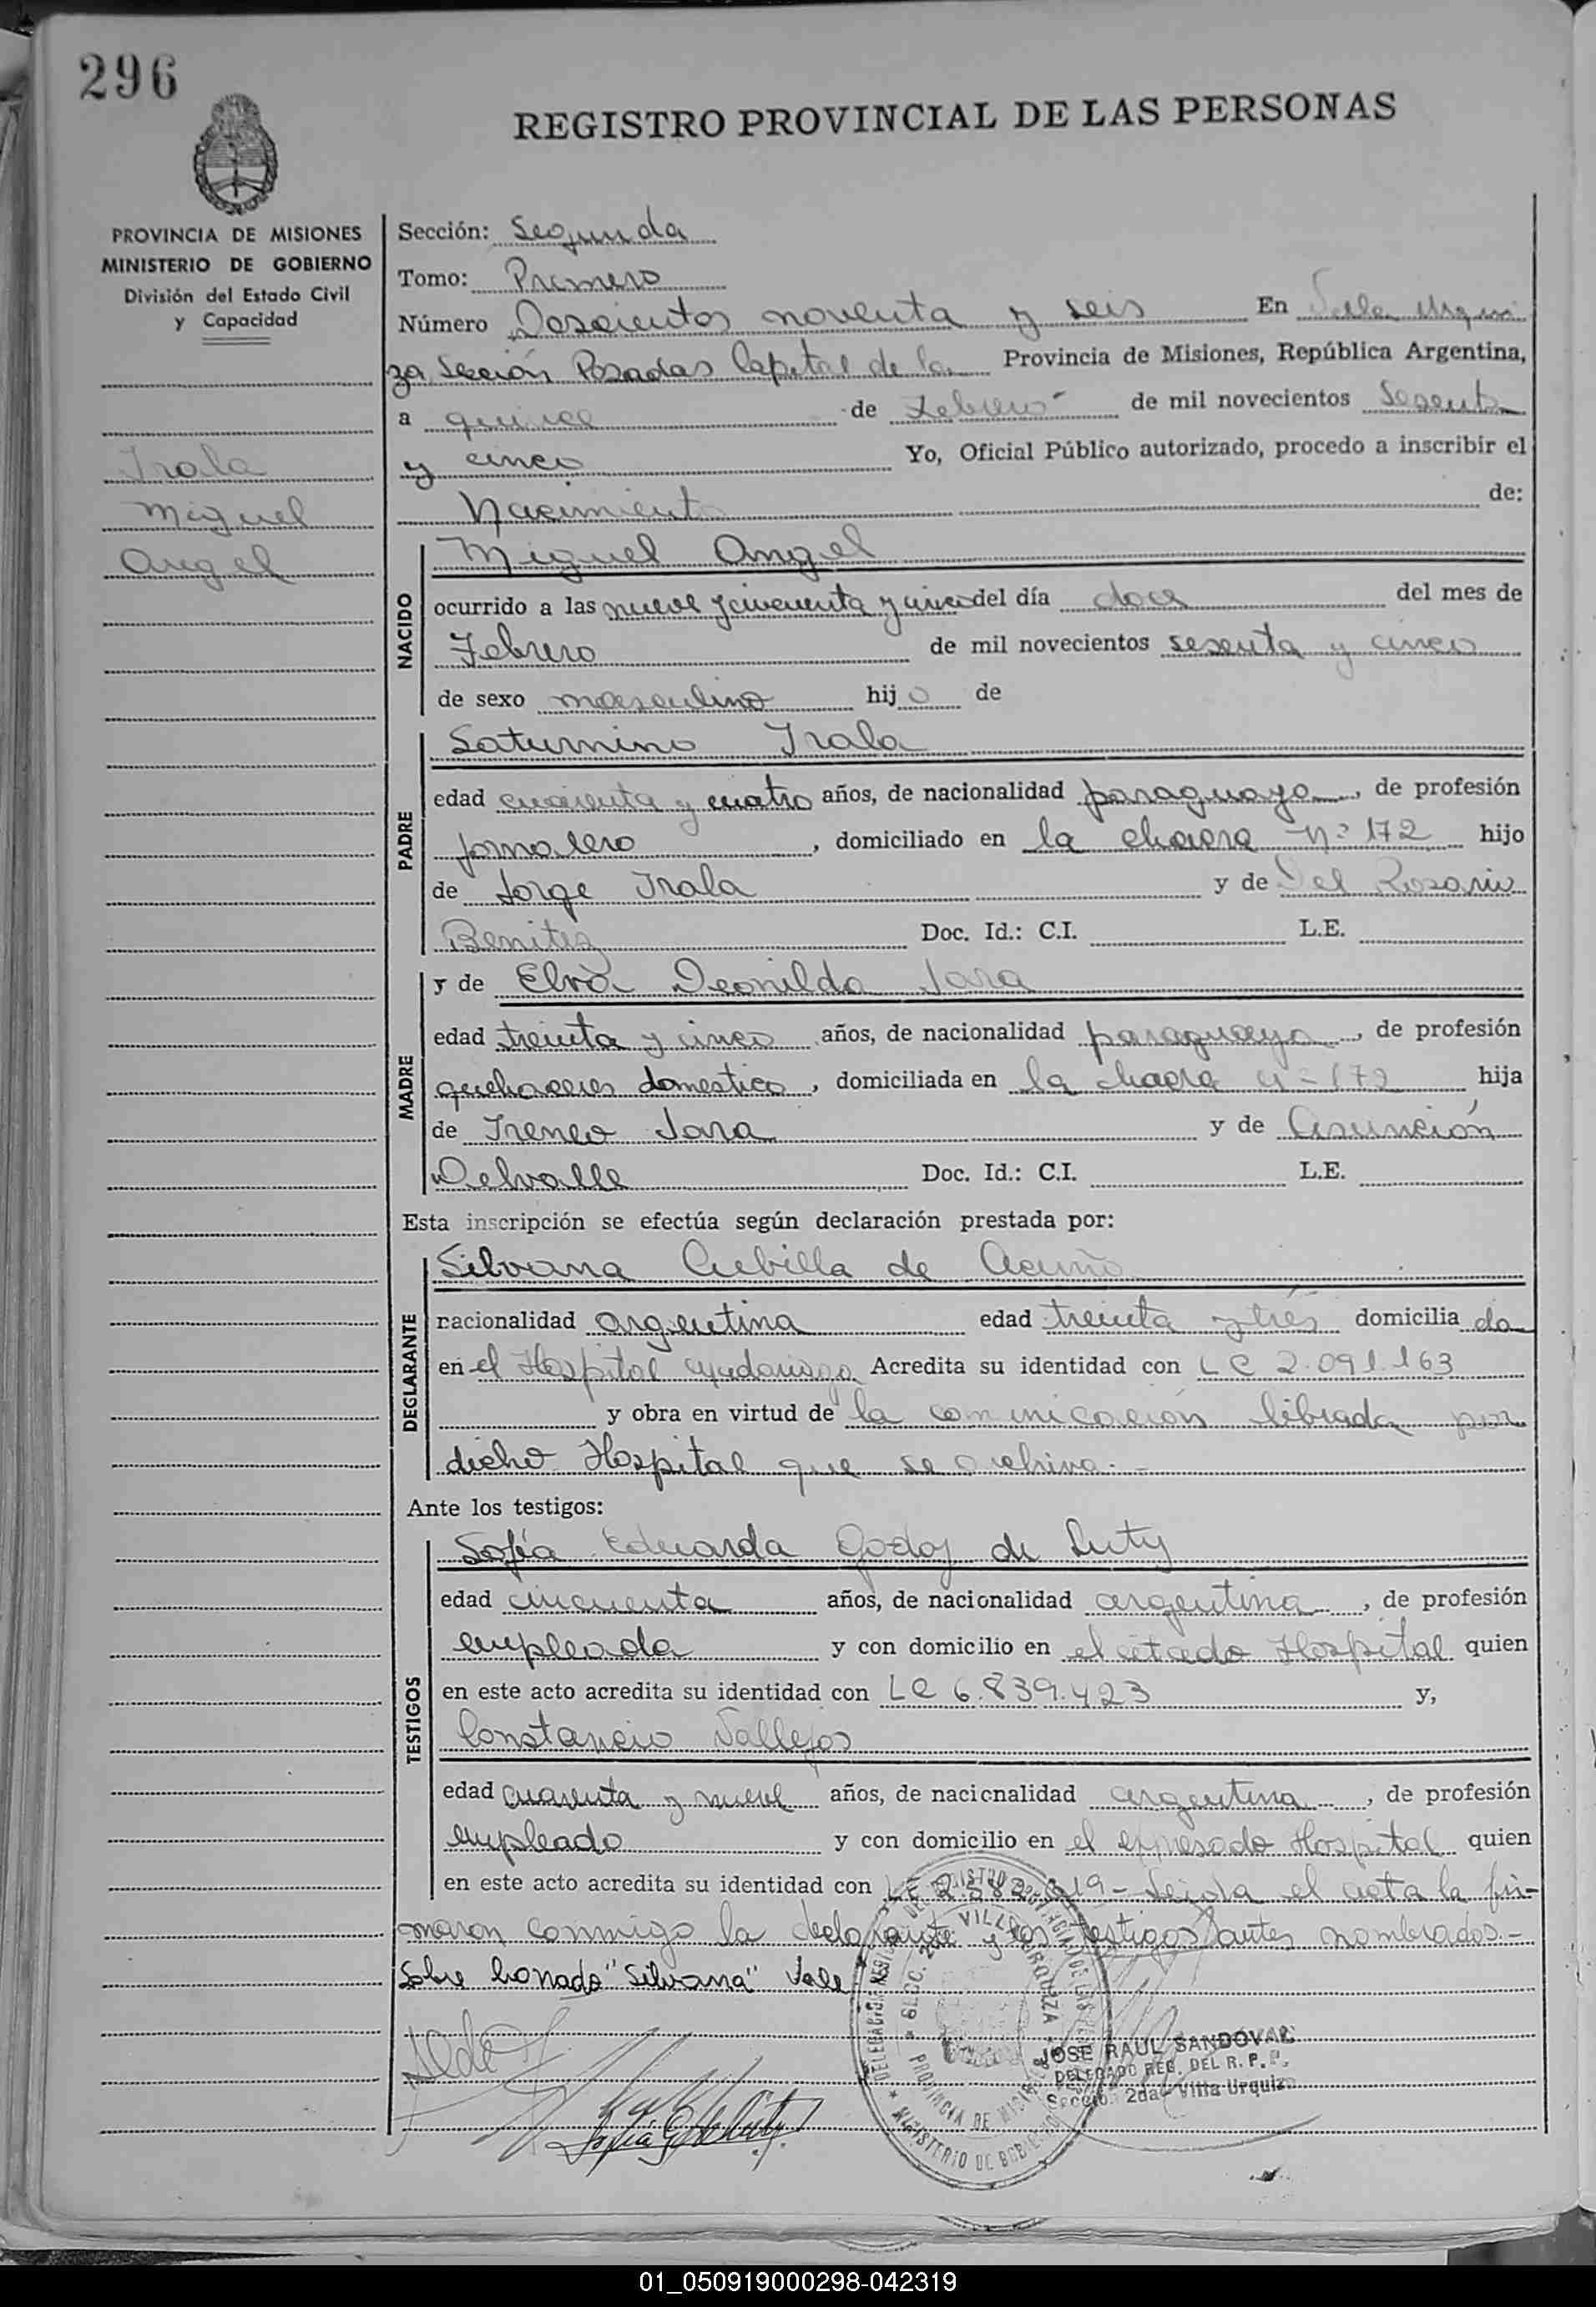 296
REGISTRO PROVINCIAL DE LAS PERSONAS
PROVINCIA DE MISIONES
MINISTERIO DE GOBIERNO
División del Estado Civil
y Capacidad
Irala
Miguel
Angel
Sección: Segunda
Tomo: Primero
Número Doscientos noventa y seis En Villa Urqui
za Sección Posadas Capital de la Provincia de Misiones, República Argentina,
a quince de Febrero de mil novecientos Sesenta
y cinco Yo, Oficial Público autorizado, procedo a inscribir el
Nacimiento de:
NACIDO
Miguel Angel
ocurrido a las nueve y cincuenta y cinco del día doce del mes de
Febrero de mil novecientos sesenta y cinco
de sexo masculino hijo de
PADRE
Saturnino Irala
edad cuarenta y cuatro años, de nacionalidad paraguaya, de profesión
jornalero, domiciliado en la chacra Nº 172 hijo
de Jorge Irala y de Del Rosario
Benitez Doc. Id.: C.I. L.E.
MADRE
y de Elva Deonilda Jara
edad treinta y cinco años, de nacionalidad paraguaya, de profesión
quehaceres domestico, domiciliada en la chacra n - 172 hija
de Ireneo Jara y de Asunción
Delvalle Doc. Id.: C.I. L.E.
Esta inscripción se efectúa según declaración prestada por:
DECLARANTE
Silvana Cubilla de Acuña
nacionalidad argentina edad treinta y tres domiciliada
en el Hospital Acredita su identidad con LC 2.091.163
y obra en virtud de la comunicación librada por
dicho Hospital que se archiva.-
Ante los testigos:
TESTIGOS
Sofía Eduarda Godoy de Luty
edad cincuenta años, de nacionalidad argentina, de profesión
empleada y con domicilio en el citado Hospital quien
en este acto acredita su identidad con LC 6.839.423 y,
Constancio Vallejos
edad cuarenta y nueve años, de nacionalidad argentina, de profesión
empleado y con domicilio en el expresado Hospital quien
en este acto acredita su identidad con LE 2.582.919 - Leida el acta la fir-
maron conmigo la declarante y los testigos antes nombrados.-
Sobre borrado "Silvana" Vale
JOSE RAUL SANDOVAL
DELEGADO REG. DEL R. P. P.
Sección 2da. Villa Urquiza
01_050919000298-042319